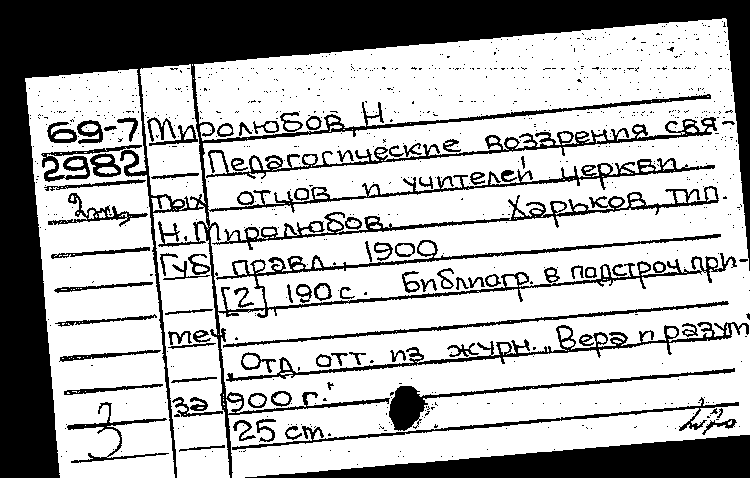 69-7 Миролюбов, Н.
2982 Педагогические воззрения свя-
2 экз. тых отцов и учителей церкви.
Н. Миролюбов. Харьков, тип.
Губ. правл., 1900.
[2], 190 с. Библиогр. в подстроч. при-
меч.
„Отд. отт. из журн. „Вера и разум
за 1900 г."
3 25 см.